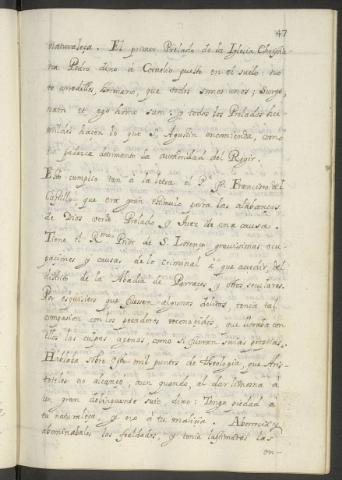 47
naturaleza. El primer Prelado de la Iglesia Christia
na Pedro dixo à Cornelio puesto en el suelo: no
te arrodilles, hermano, que todos somos unos; Surge,
nam et ego homo sum: y todos los Prelados hu
mildes hacen lo que S. Agustin encomienda, como
no padezca detrimento la autoridad del Regir.
Esto cumplio tan à la letra el P. Fr. Francisco del
Castillo que era gran estimulo para las alabanzas
de Dios verle Prelado, y Juez de una causa.
Tiene el Rmo. Prior de S. Lorenzo gravissimas ocu
paciones y causas de lo criminal à que acudir, del
distrito de la Abadia de Parraces, y otros seculares.
Por esquisitos que fuesen algunos delitos, tenia tal
compasion con los pecadores reconocidos, que lloraba con
ellos las culpas agenas, como si fueran suias propias.
Hablaba sobre esto mil puntos de Theologia, que Aris
toteles no alcanzò, aun quando, al dar limosna à
un gran delinquente suio dixo: Tengo piedad à
tu naturaleza, y no à tu malicia. Aborrecia y
abominaba las fealdades, y tenia lastimas las
on-